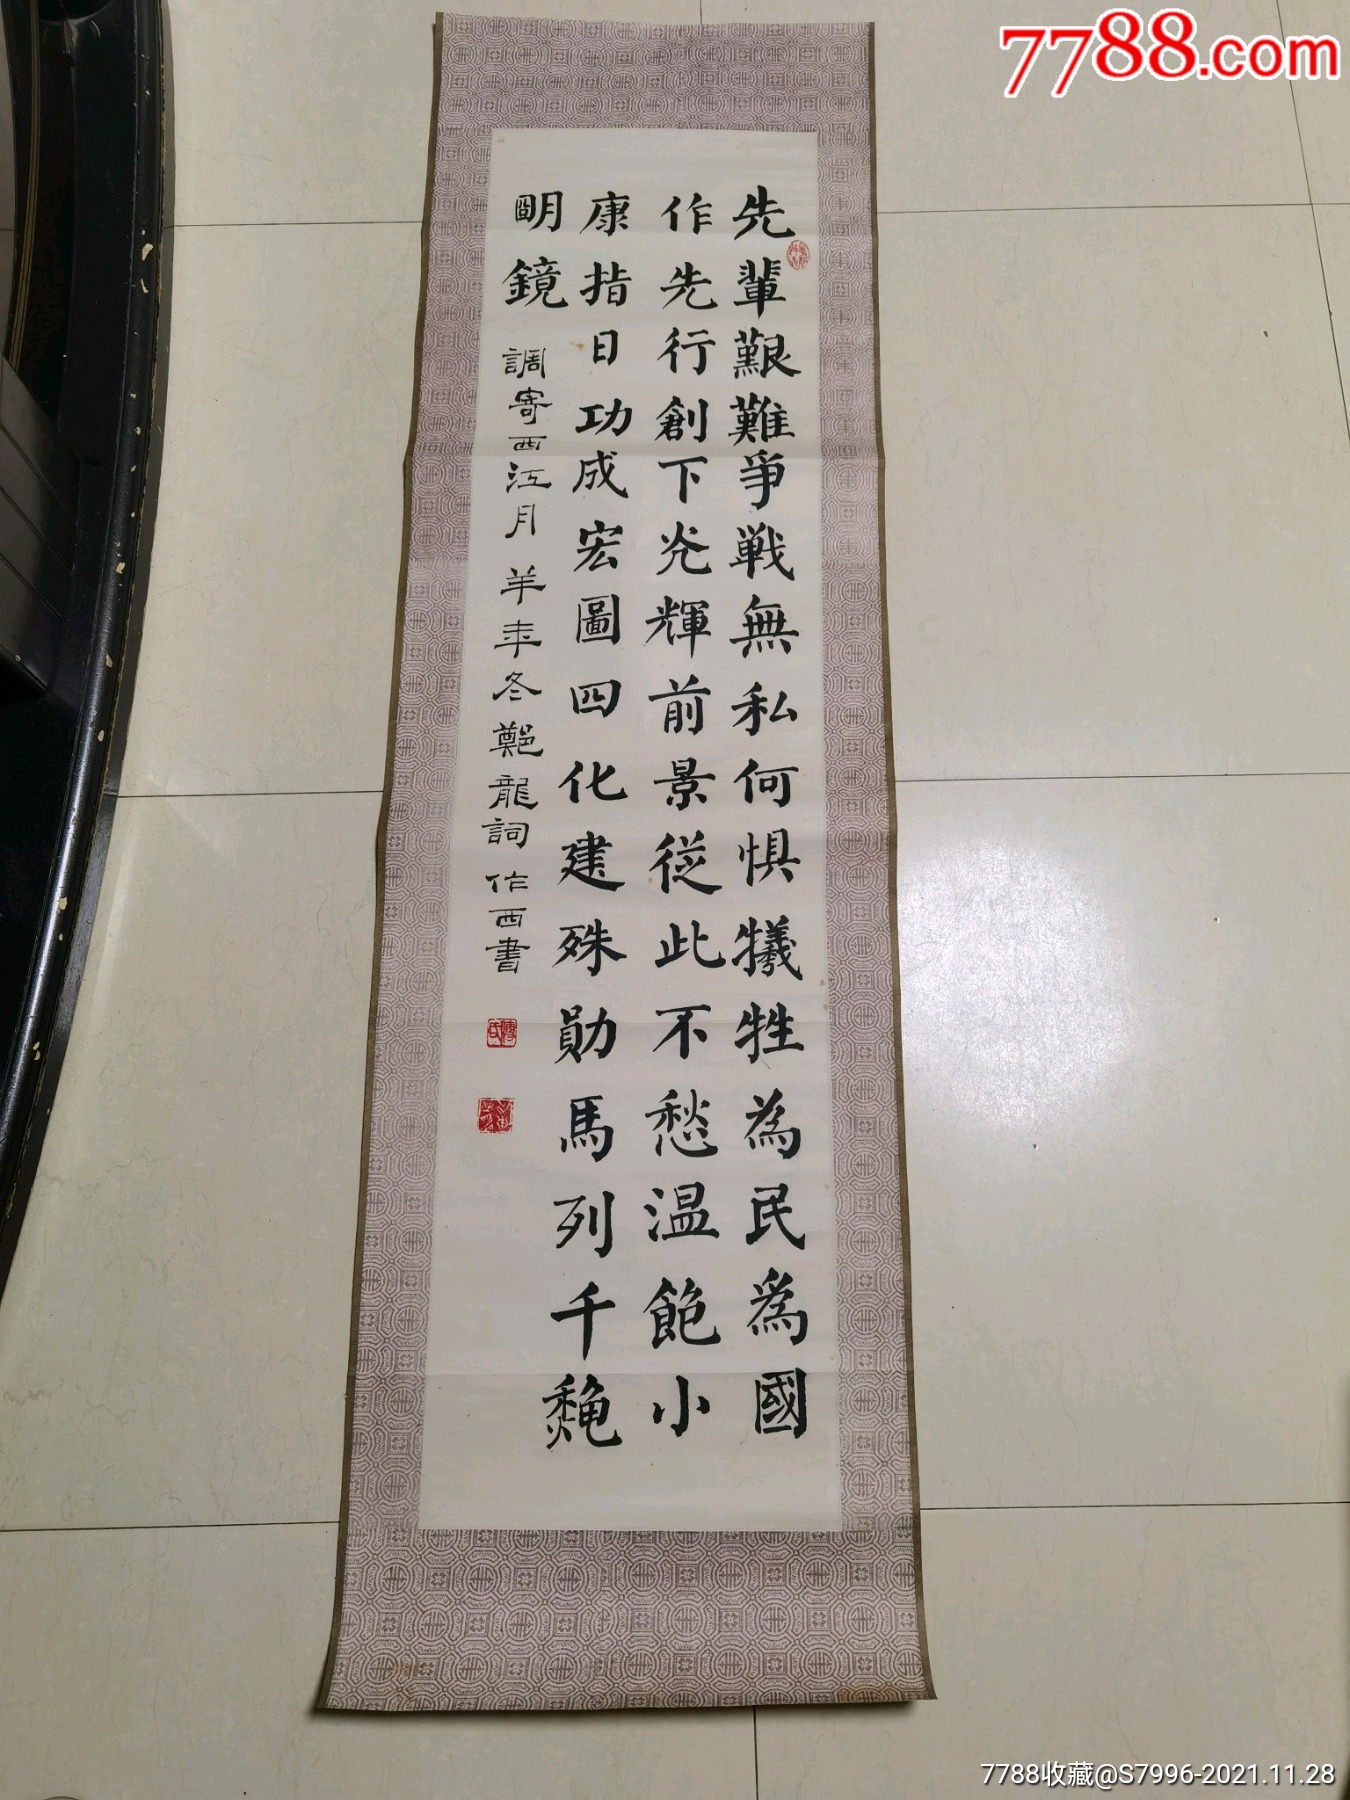 7788.com
先輩艱難爭戦無私何懼犧牲為民為國
作先行創下光輝前景従此不愁温飽小
康指日功成宏圖四化建殊勛馬列千龝
朙鏡 調寄西江月 羊年冬鄭龍詞 作西書
7788收藏@S7996-2021.11.28